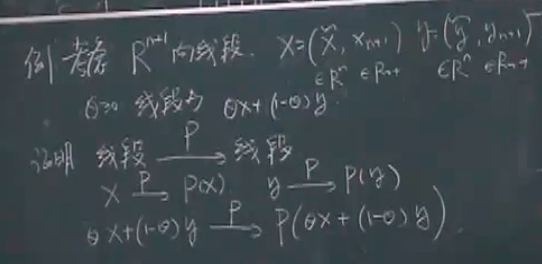 例 考虑 R^{n+1} 内线段. x=(x̃, x_{n+1}) y=(ỹ, y_{n+1})
∈R^n ∈R_{++} ∈R^n ∈R_{++}
θ≥0 线段为 θx+(1-θ)y
证明 线段 \xrightarrow{P} 线段
x \xrightarrow{P} P(x). y \xrightarrow{P} P(y)
θx+(1-θ)y \xrightarrow{P} P(θx+(1-θ)y).